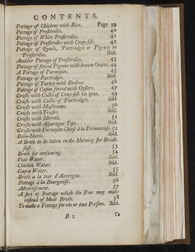 CONTENTS.
Pottage of Chickens with Rice. Page 39
Pottage of Profitrolles. 40
Pottage of White Profitrolles. 41
Pottage of Profitrolles with Cray-fish.
Pottage of Quails, Partridges or Pigeons in
Profitrolles. ibid.
Another Pottage of Profitrolles. 43
Pottage of forced Pigeons with brown Onions. 44
A Pottage of Parmesan. 45
Pottage of Partridges. ibid.
Pottage of Turkey with Endive. 46
Pottage of Capon forced with Oysters. 47
Crusts with Cullis of Cray-fish en gras. 49
Crusts with Cullis of Partridges. ibid.
Crusts with Morells. ibid.
Crusts with Truffles.
Crusts with Morells. ibid.
Crusts with Asparagus Tops. ibid.
Crusts with Parmesan Cheese à la Piémontoise. 51
Bain-Marie. ibid.
A Broth to be taken in the Morning for Breakfast.
Broth for consuming. 54
Veal Water. ibid.
Chicken Water. ibid.
Capon Water. 55
Broth à la
Pottage à la Bourgeoise. 56
Advertisement. 57
A sort of Pottage which the Poor may make
instead of Meat Broth. 58
To make a Pottage for one or two Persons. ibid.
B 2
To